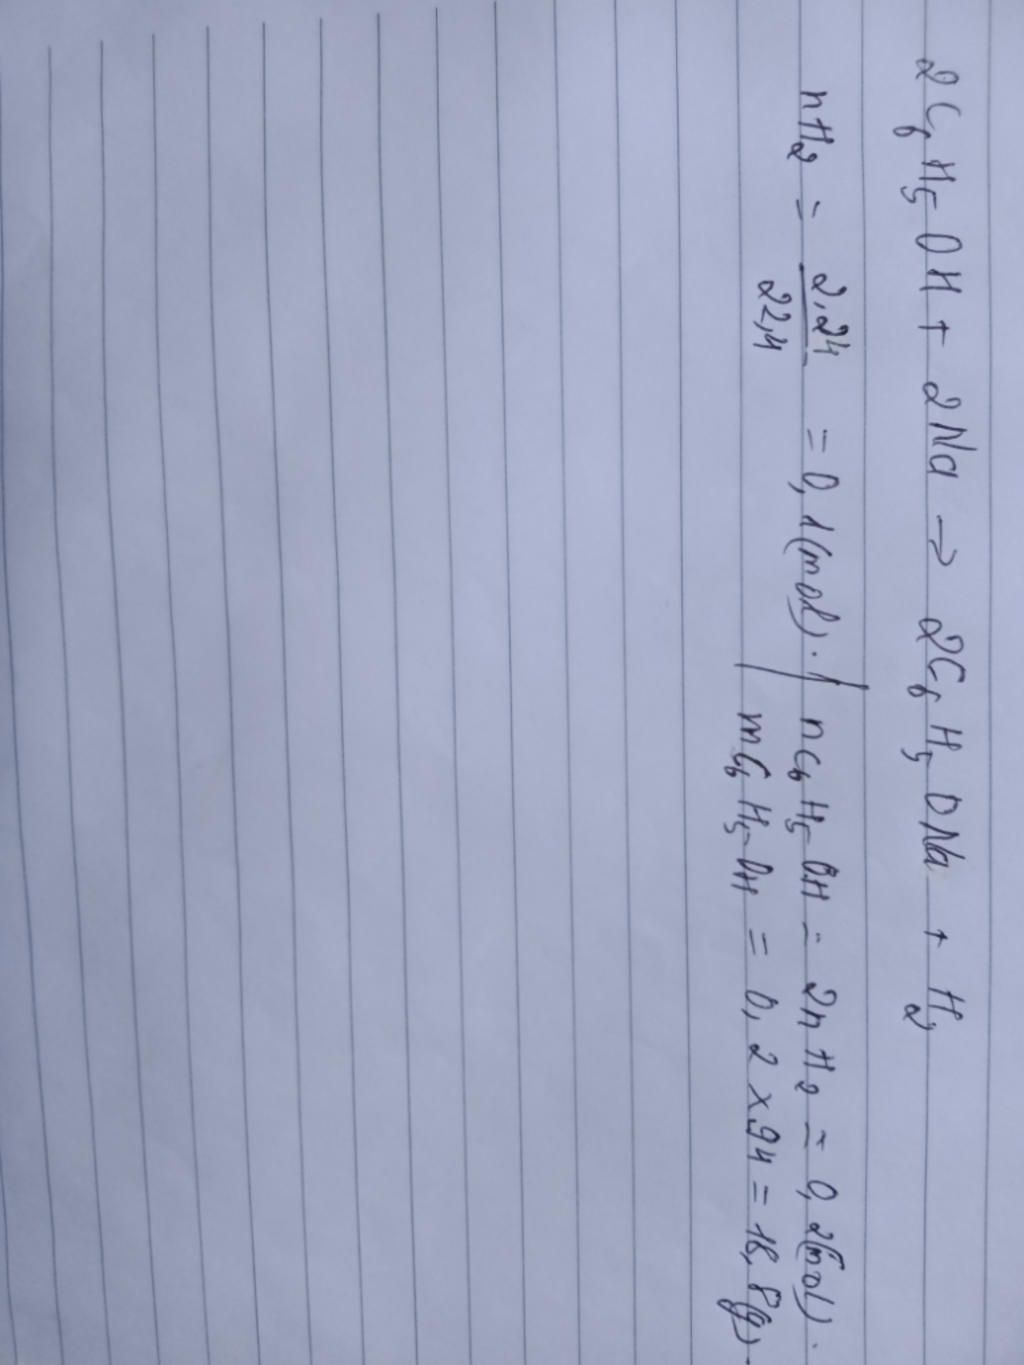 2C₆H₅OH + 2Na → 2C₆H₅ONa + H₂
nH₂ = 2,24/22,4 = 0,1(mol). | nC₆H₅OH = 2nH₂ = 0,2(mol).
| mC₆H₅OH = 0,2 x 94 = 18,8(g).